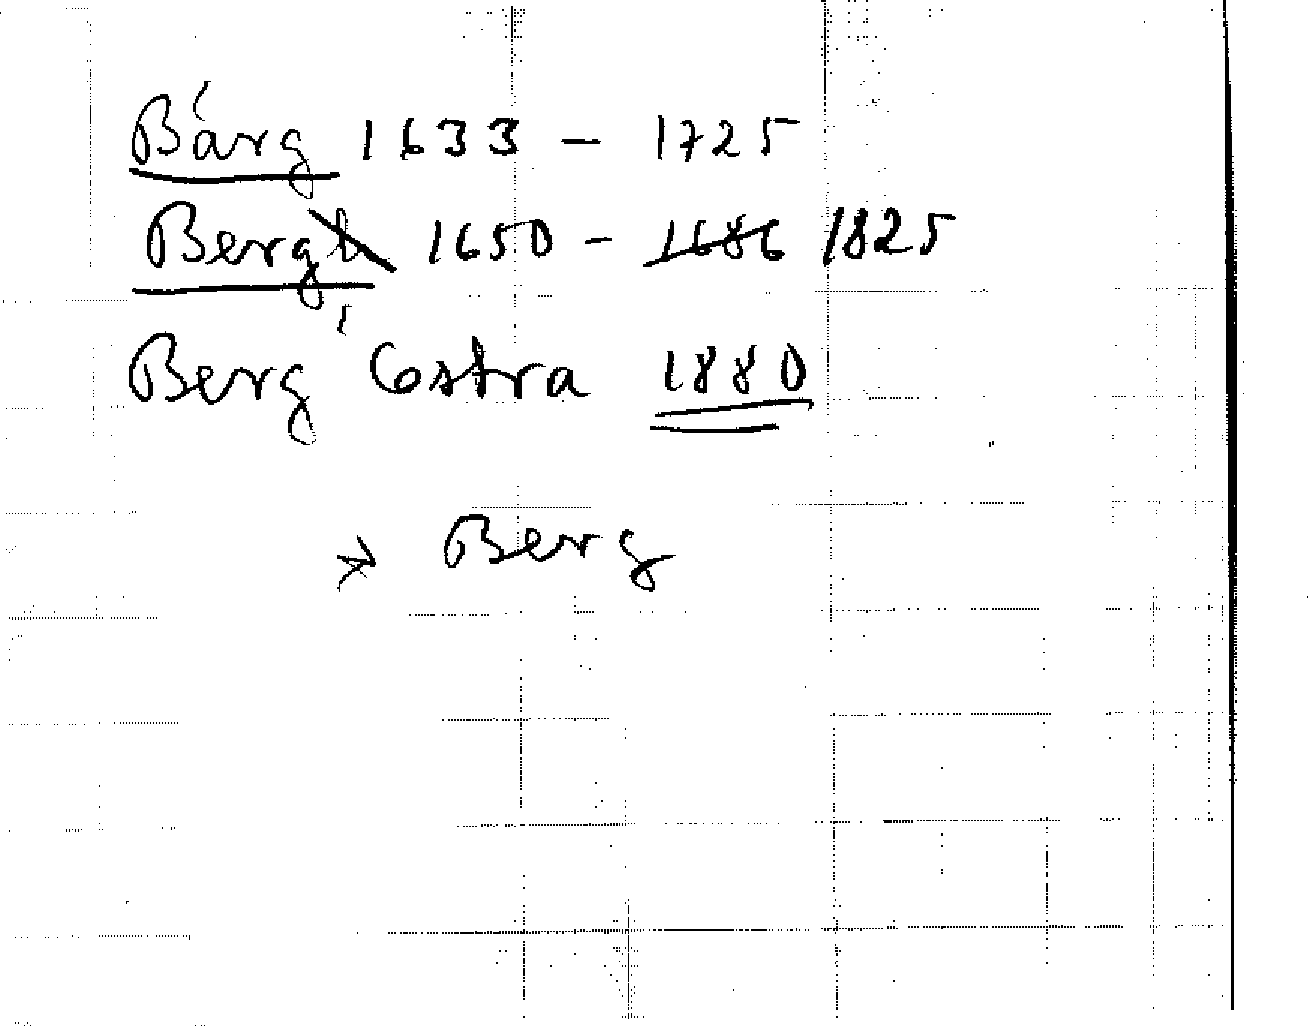 Bårg 1633 - 1725
Berg 1650 - 1686 1825
Berg Östra 1880
Berg